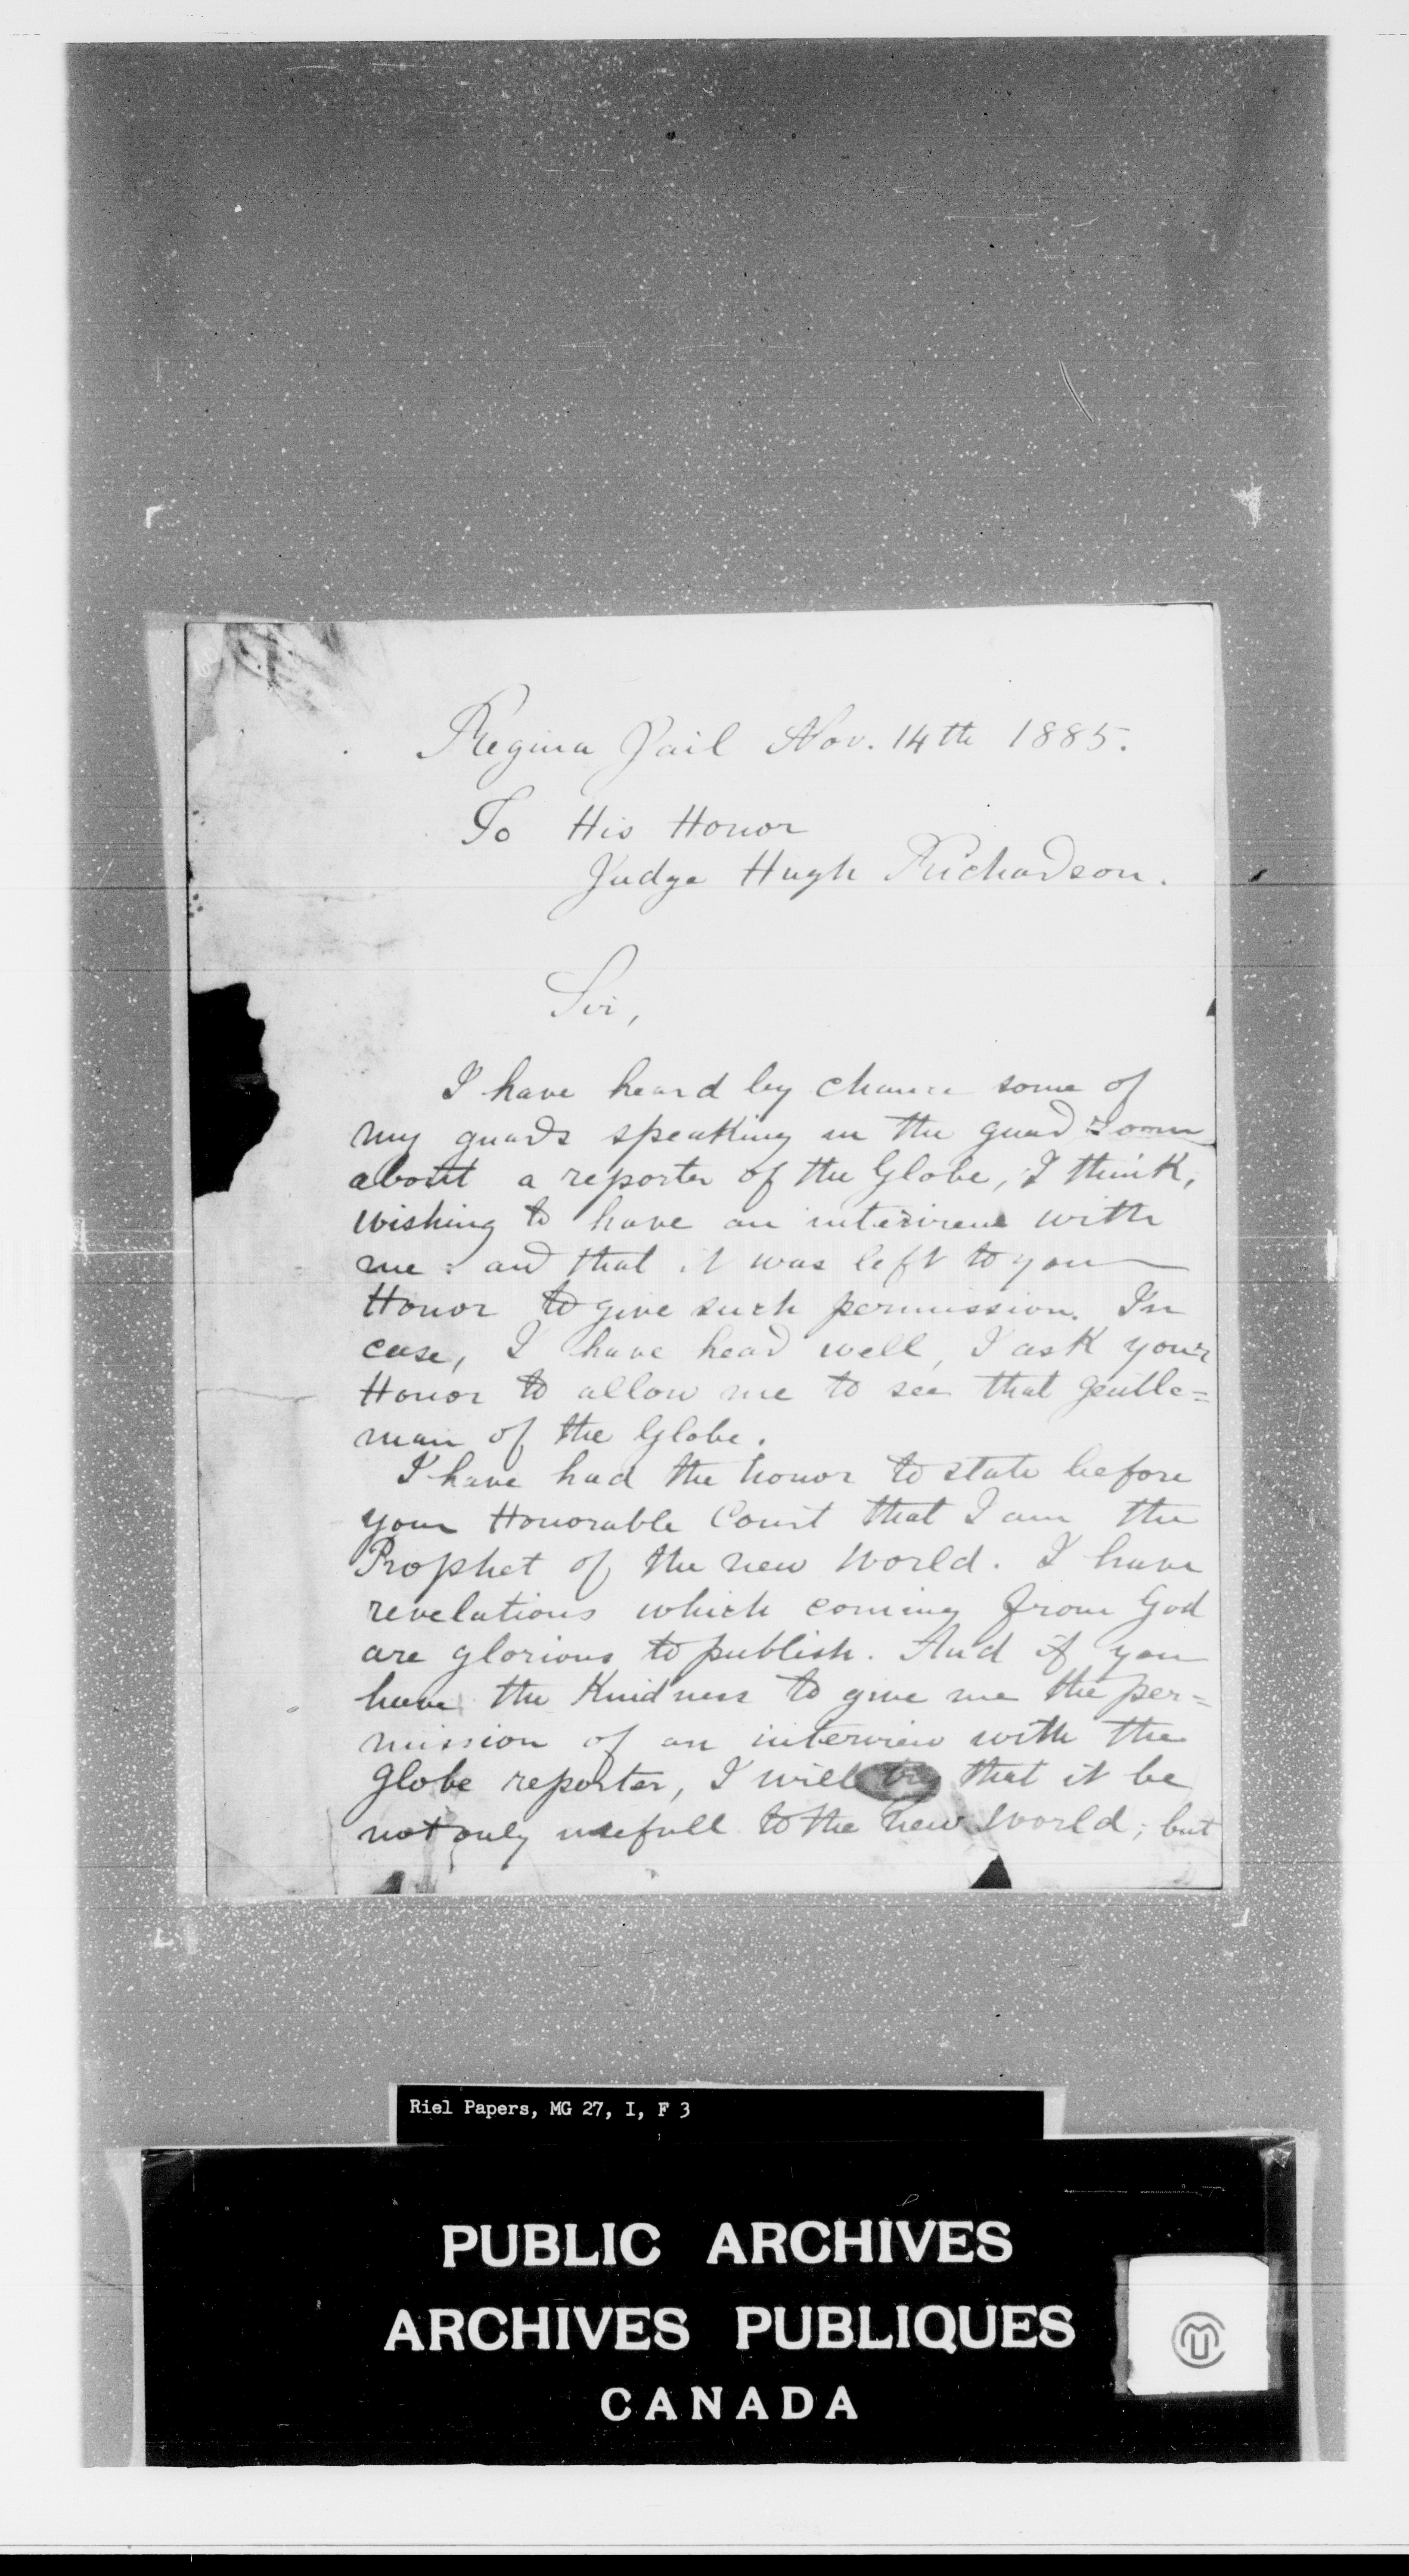 Regina Jail Nov. 14th 1885.
To His Honor
Judge Hugh Richardson.
Sir,
I have heard by chance some of
my guards speaking in the guard room
about a reporter of the Globe, I think,
wishing to have an interview with
me : and that it was left to your
Honor to give such permission. In
case, I have heard well, I ask your
Honor to allow me to see that gentle=
man of the Globe.
I have had the honor to state before
your Honorable Court that I am the
Prophet of the new world. I have
revelations which coming from God
are glorious to publish. And if you
have the Kindness to give me the per=
mission of an interview with the
globe reporter, I will try that it be
not only usefull to the new world; but
Riel Papers, MG 27, I, F 3
PUBLIC ARCHIVES
ARCHIVES PUBLIQUES
CANADA